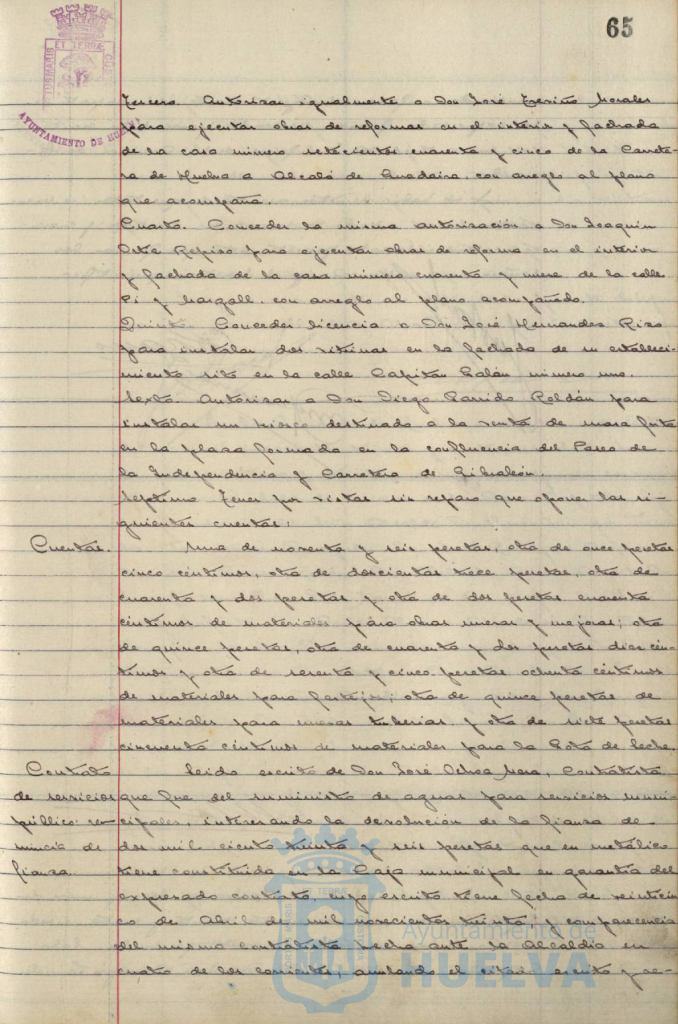 65
PORTUS MARIS ET TERRÆ CUSTODIA
AYUNTAMIENTO DE HUELVA
Tercero. Autorizar igualmente a Don José Morales
para ejecutar obras de reformas en el interior y fachada
de la casa número setecientos cuarenta y cinco de la Carrete-
ra de Huelva a Alcalá de Guadaira, con arreglo al plano
que acompaña.
Cuarto. Conceder la misma autorización a Don Joaquin
Ortiz Repiso para ejecutar obras de reforma en el interior
y fachada de la casa número cuarenta y nueve de la calle
Pi y Margall, con arreglo al plano acompañado.
Quinto. Conceder licencia a Don José Hernandez Rizo
para instalar dos vitrinas en la fachada de su estableci-
miento sito en la calle Capitan Galán número uno.
Sexto. Autorizar a Don Diego Garrido Roldán para
instalar un kiosco destinado a la venta de masa frita
en la plaza formada en la confluencia del Paseo de
la Independencia y Carretera de Gibraleón.
Septimo Tener por vistas sin reparo que oponer las si-
guientes cuentas:
Cuentas.
Una de noventa y seis pesetas, otra de once pesetas
cinco céntimos, otra de doscientas trece pesetas, otra de
cuarenta y dos pesetas y otra de dos pesetas cuarenta
céntimos de materiales para obras nuevas y mejoras; otra
de quince pesetas, otra de cuarenta y dos pesetas diez cén-
timos y otra de sesenta y cinco pesetas ochenta céntimos
de materiales para festejos; otra de quince pesetas de
materiales para nuevas tuberias, y otra de siete pesetas
cincuenta céntimos de materiales para la Gota de leche.
Contrato
de servicios
público: re-
nuncia de
fianza.
Leido escrito de Don José Ochoa Mora, Contratista
que fue del suministro de aguas para servicios muni-
cipales, interesando la devolución de la fianza de
dos mil ciento treinta y seis pesetas que en metálico
tiene constituida en la Caja municipal en garantía del
expresado contrato, cuyo escrito tiene fecha de veinticin-
co de Abril de mil novecientos treinta, y comparecencia
del mismo contratista hecha ante la Alcaldía en
cuatro de los corrientes, anulando el citado escrito y re-
Ayuntamiento de
HUELVA